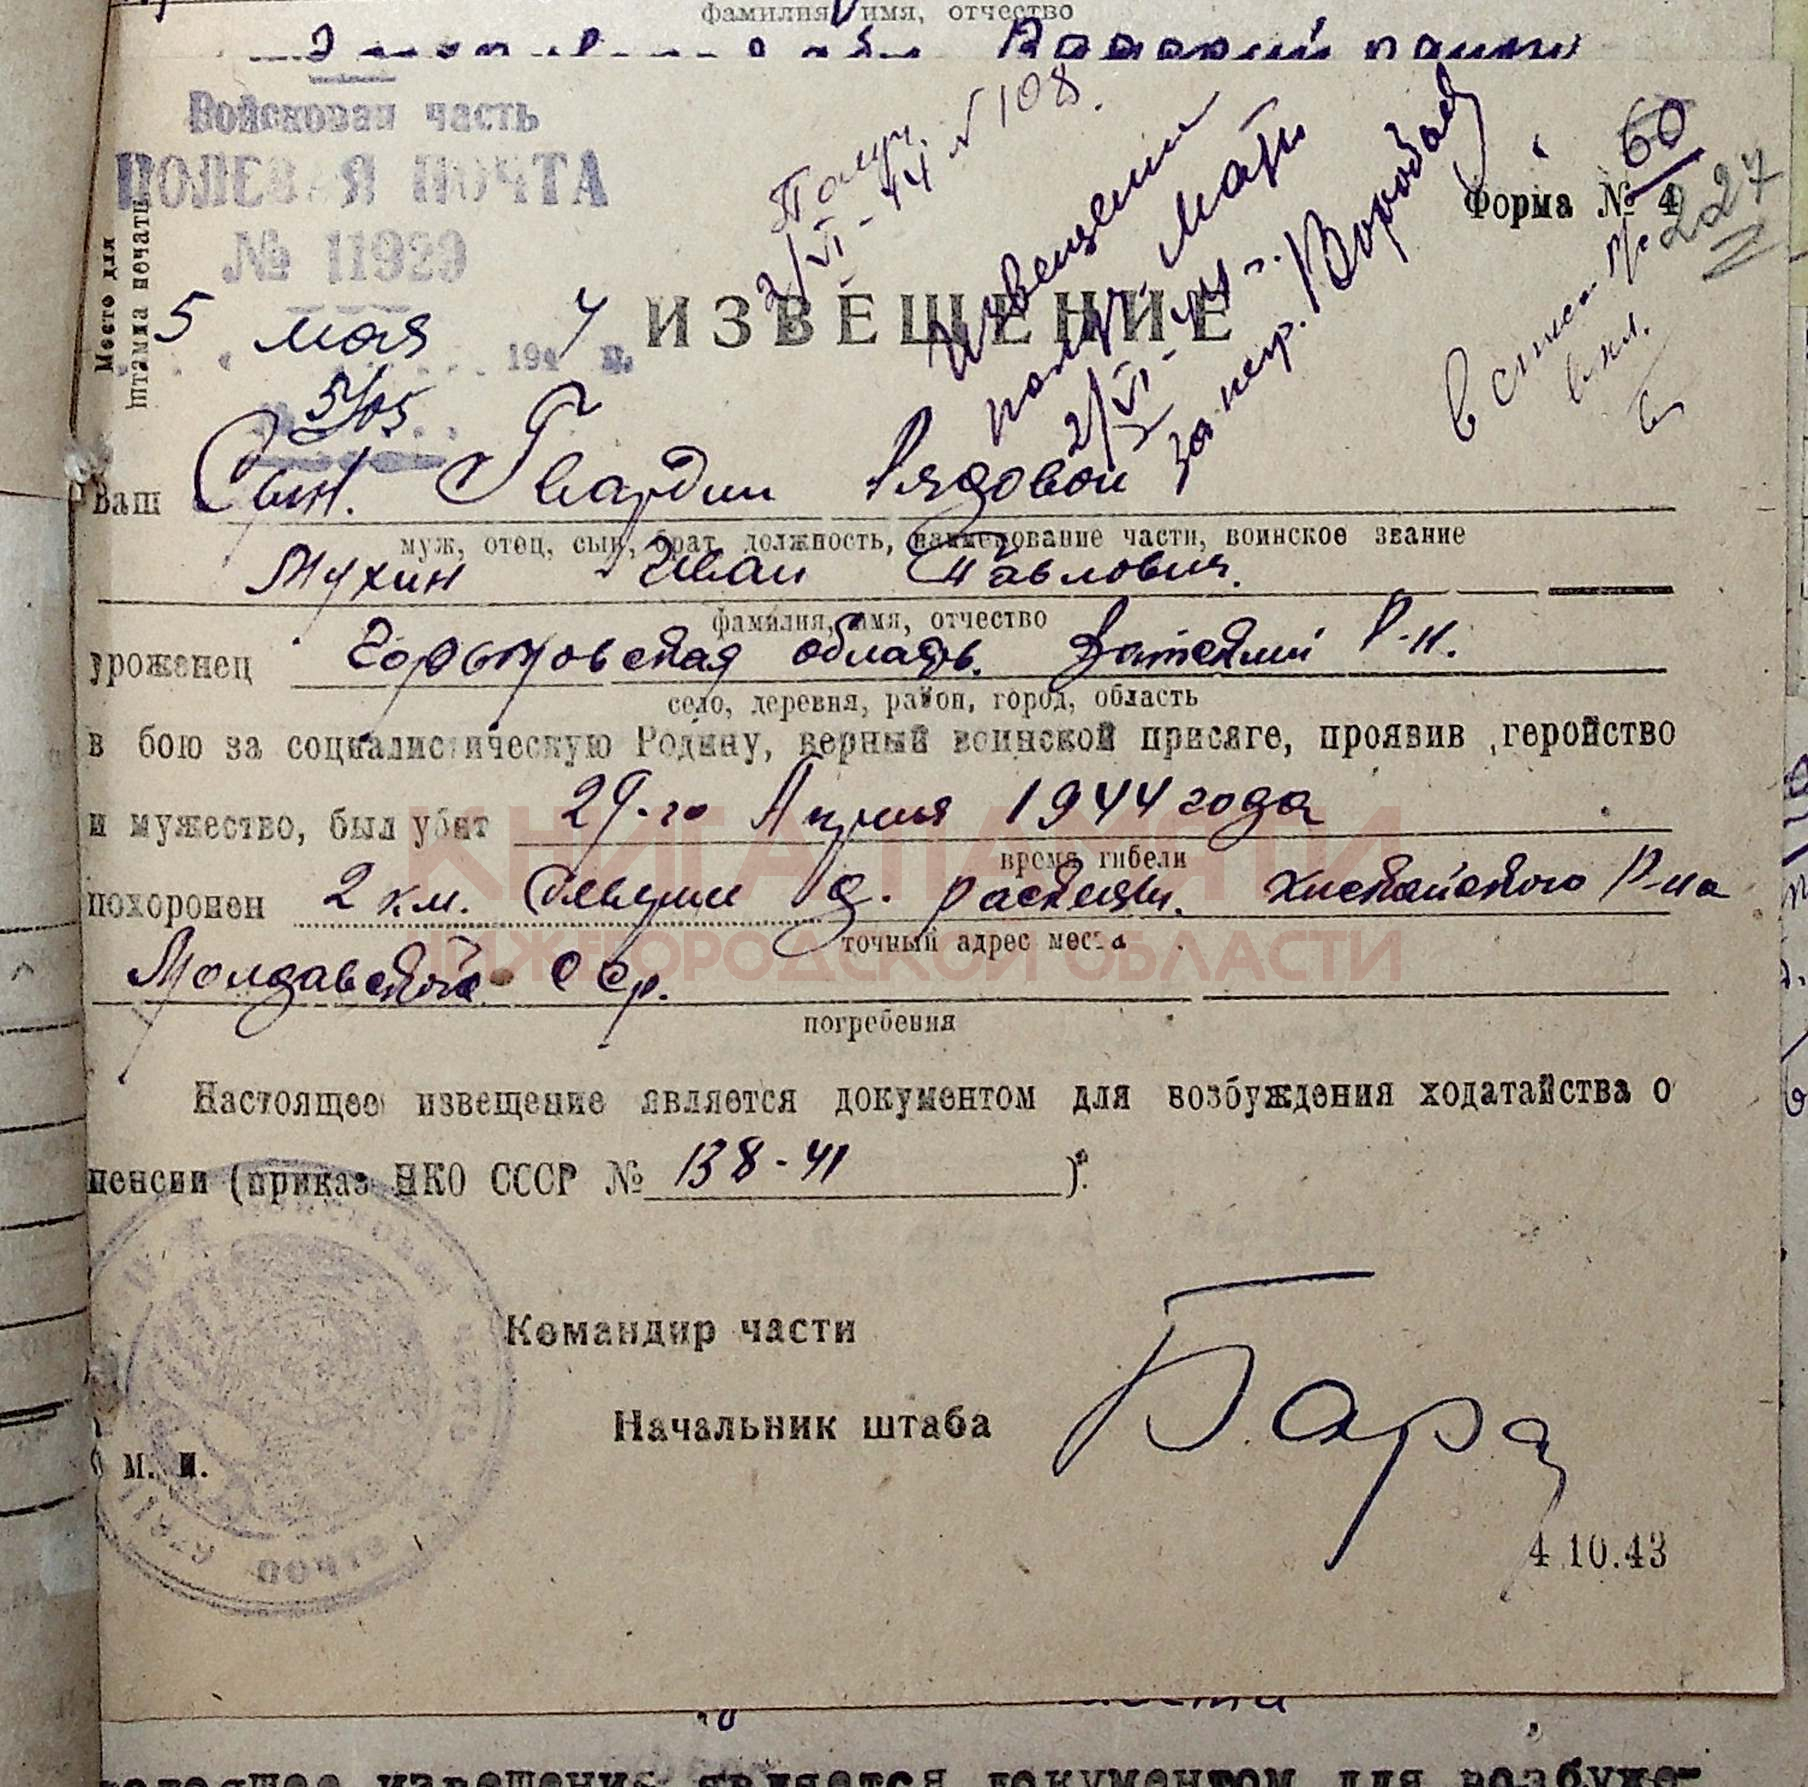 фамилия, имя, отчество
Войсковая часть
ПОЛЕВАЯ ПОЧТА
№ 11929
Место для
штампа печать
5 мая 1944 г.
5/05
Получ.
2/VI-44 № 108.
Извещение
получ. Мать
2/VI-44 г.
60
Форма № 4
227
в списк
вкл.
ИЗВЕЩЕНИЕ
Ваш Сын. Гвардии Рядовой
муж, отец, сын, брат, должность, наименование части, воинское звание
Мухин Иван Павлович.
фамилия, имя, отчество
уроженец Горьковская область. Ватский Р-н.
село, деревня, район, город, область
в бою за социалистическую Родину, верный воинской присяге, проявив геройство
и мужество, был убит 29-го Апреля 1944 года
время гибели
похоронен 2 км. д. Р-на
точный адрес места
Молдавской ССР.
погребения
Настоящее извещение является документом для возбуждения ходатайства о
пенсии (приказ НКО СССР № 138-41 ).
Командир части
Начальник штаба
М. П.
4.10.43
КНИГА ПАМЯТИ
НИЖЕГОРОДСКОЙ ОБЛАСТИ
извещение является документом для возбужде-